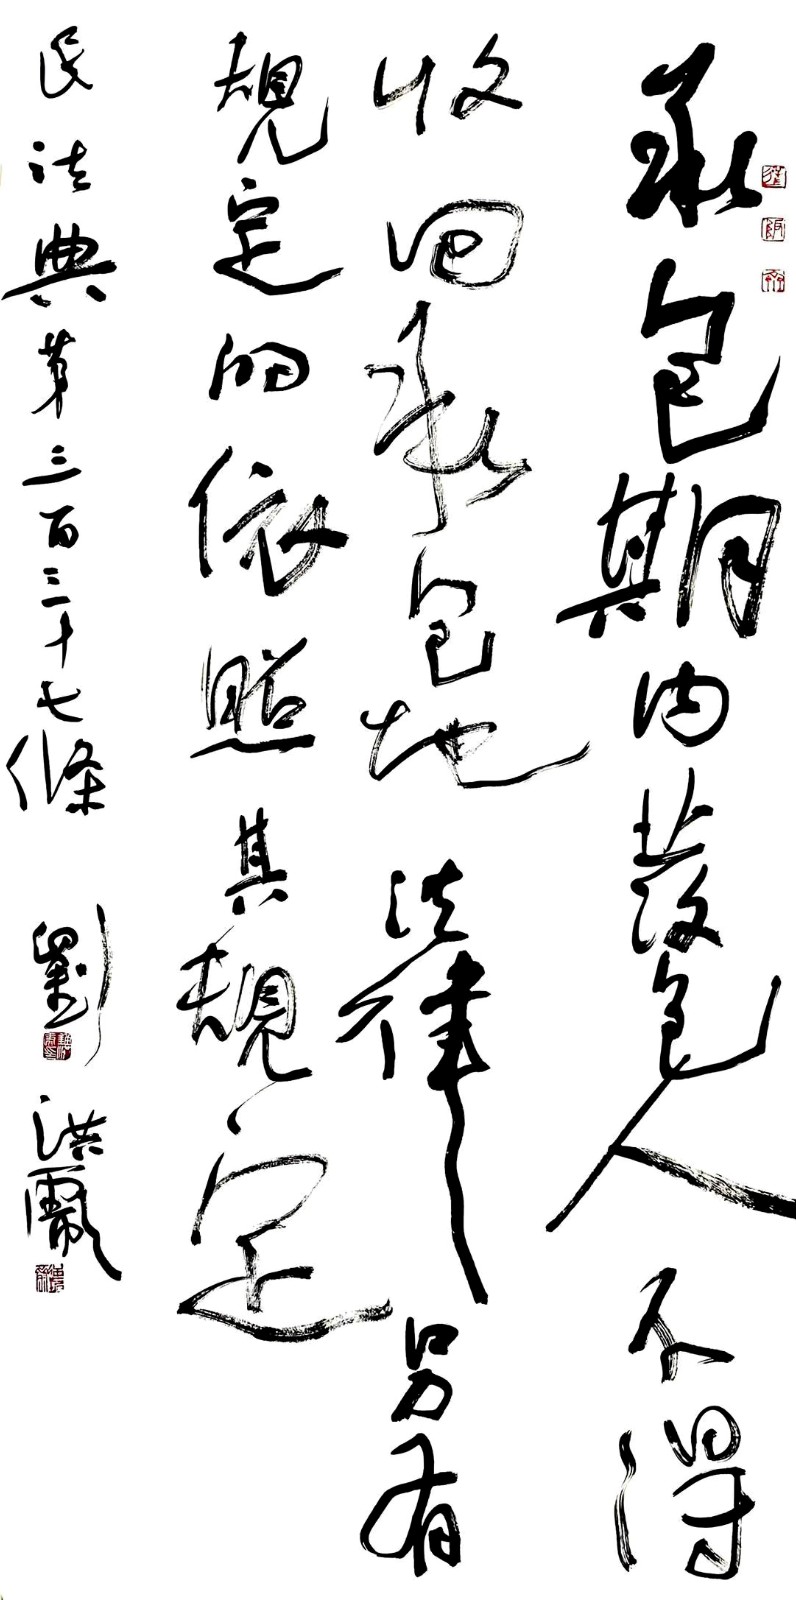 承包期內發包人不得
收回承包地法律另有
規定的依照其規定
民法典第三百三十七條 劉洪佩